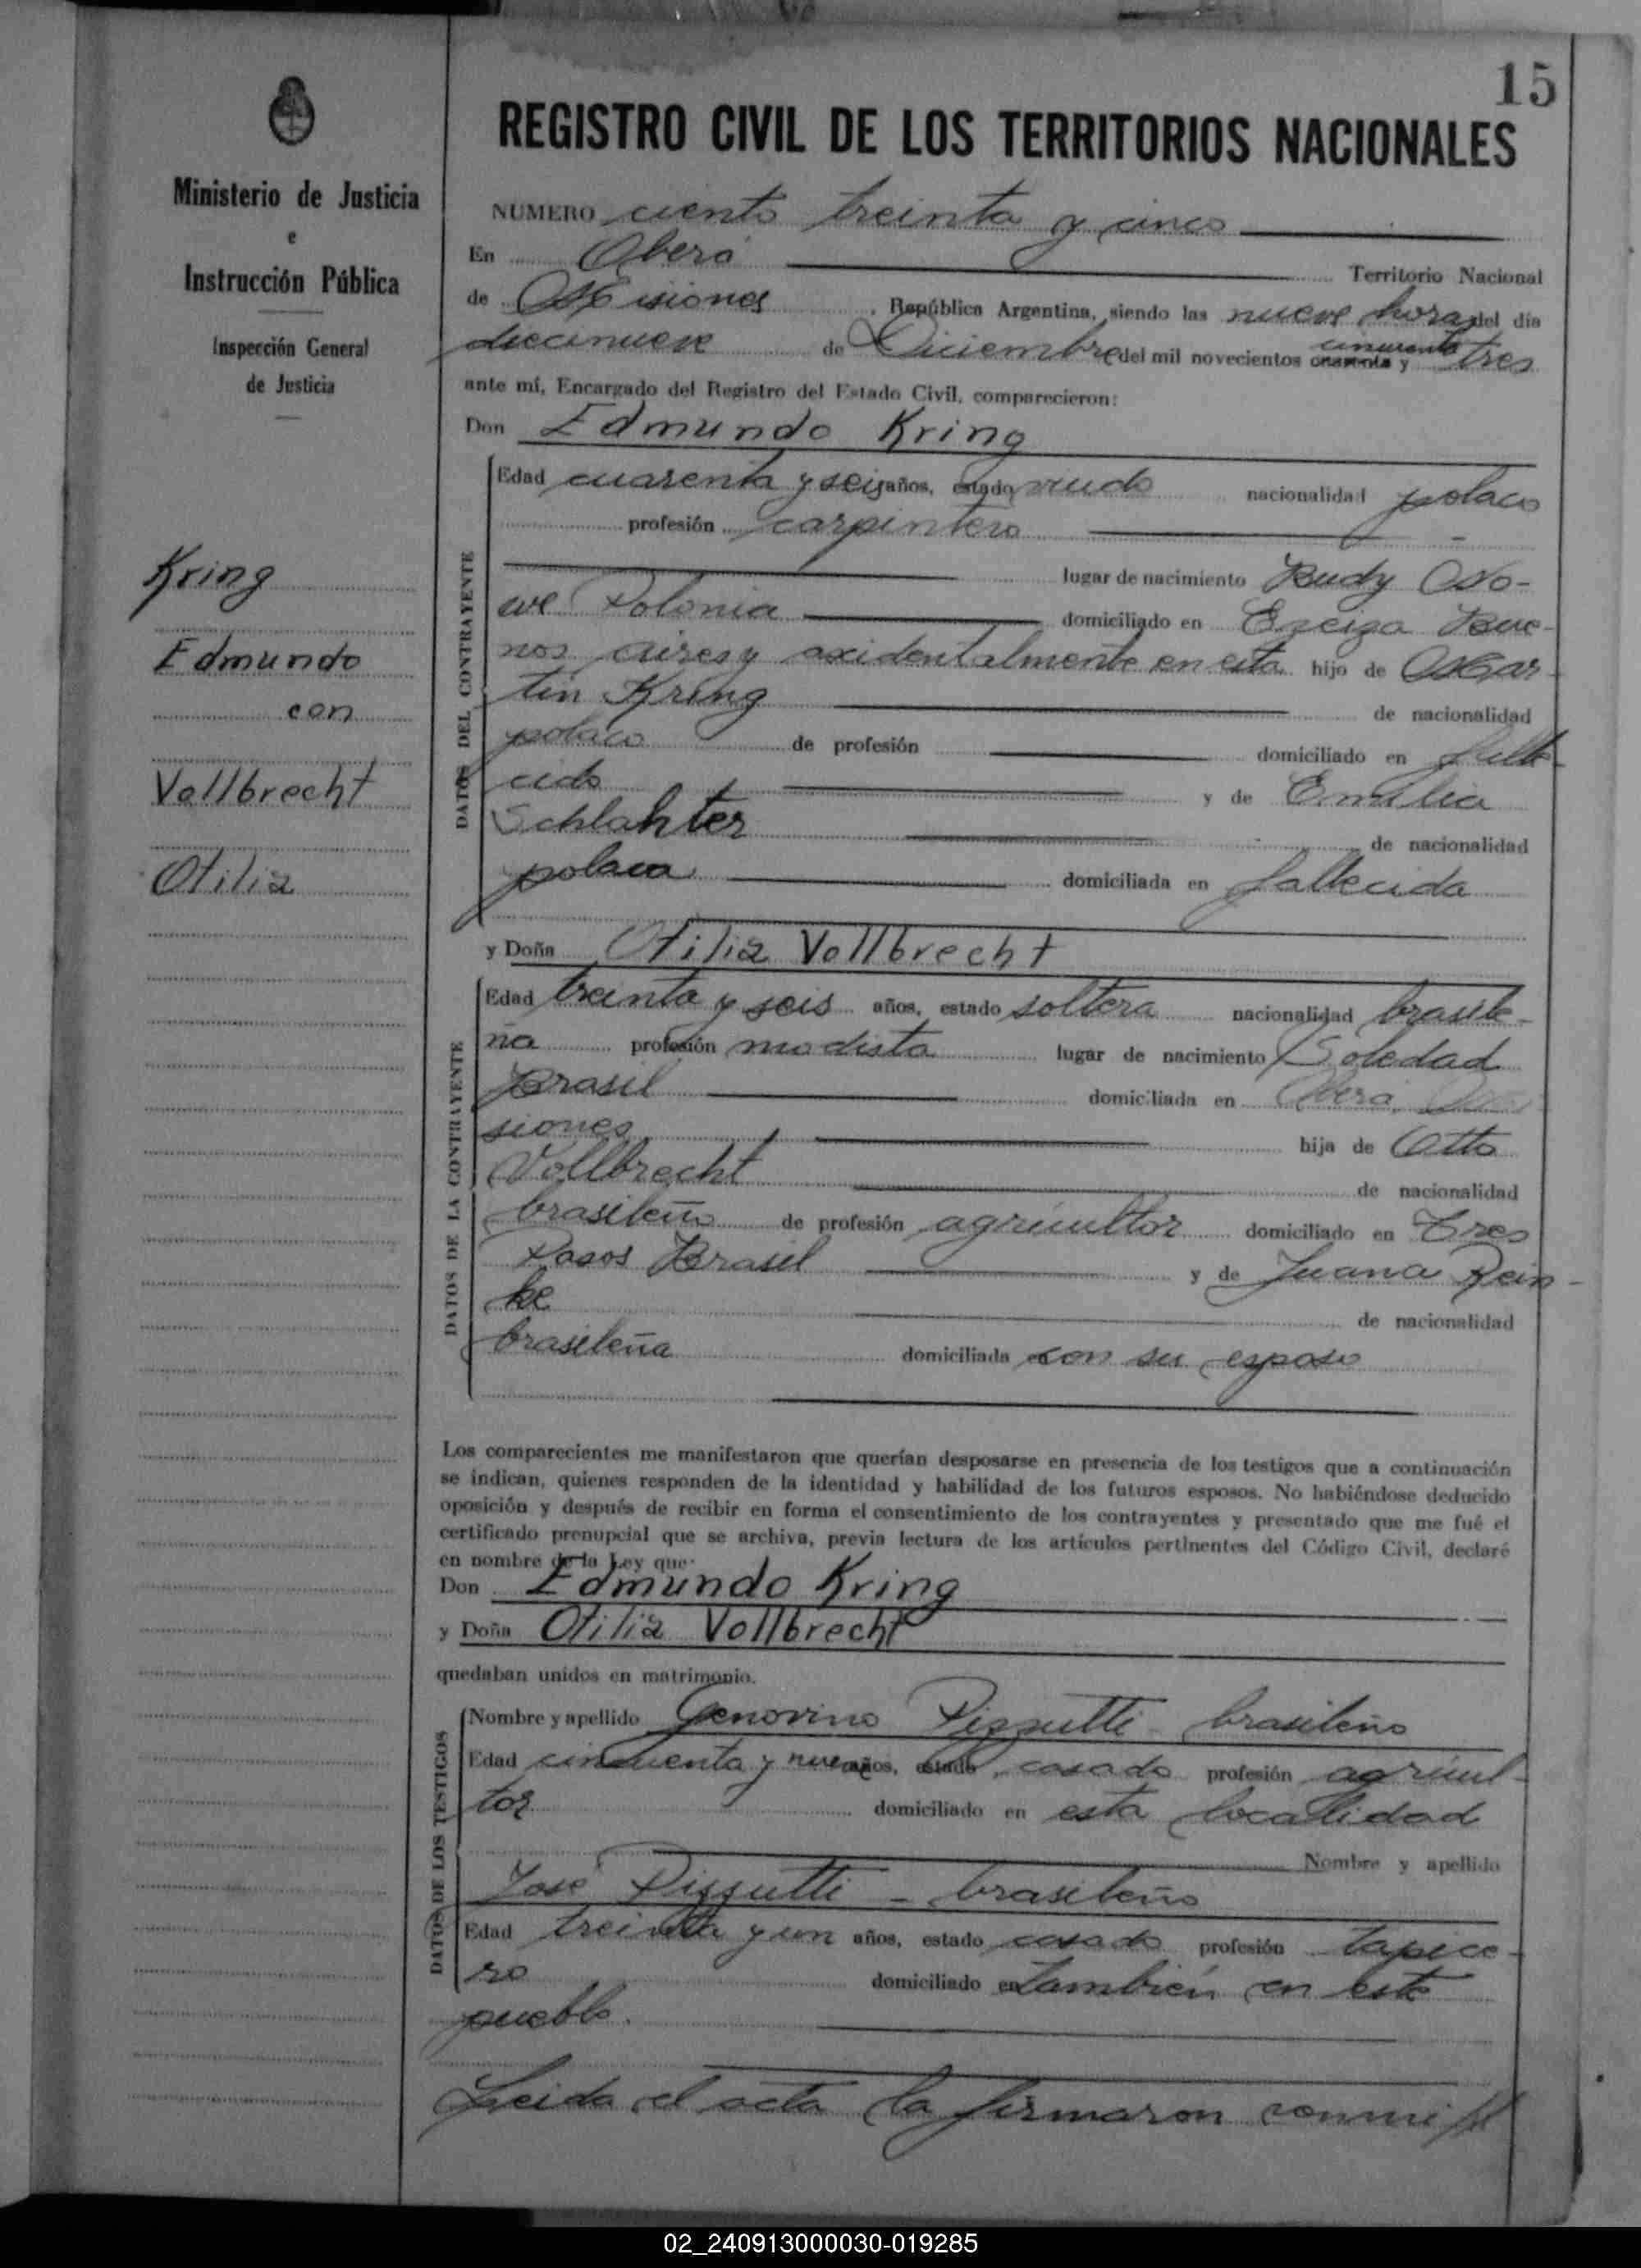 15
REGISTRO CIVIL DE LOS TERRITORIOS NACIONALES
Ministerio de Justicia
e
Instrucción Pública
Inspección General
de Justicia
Kring
Edmundo
con
Vollbrecht
Otilia
NUMERO ciento treinta y cinco
En Oberá Territorio Nacional
de Misiones, República Argentina, siendo las nueve horas del día
diecinueve de Diciembre del mil novecientos cincuenta y tres
ante mí, Encargado del Registro del Estado Civil, comparecieron:
Don Edmundo Kring
DATOS DEL CONTRAYENTE
Edad cuarenta y seis años, estado viudo nacionalidad polaco
profesión carpintero
lugar de nacimiento Rudy No-
we Polonia domiciliado en Ezeiza Bue-
nos aires y axidentalmente en esta hijo de Mar-
tin Kring de nacionalidad
polaco de profesión domiciliado en falle-
cido y de Emilia
Schlahter de nacionalidad
polaca domiciliada en fallecida
y Doña Otilia Vollbrecht
DATOS DE LA CONTRAYENTE
Edad treinta y seis años, estado soltera nacionalidad brasile-
ña profesión modista lugar de nacimiento Soledad
Brasil domiciliada en Oberá, Mi-
siones hija de Otto
Vollbrecht de nacionalidad
brasileño de profesión agricultor domiciliado en Tres
Pasos Brasil y de Juana Rein-
ke de nacionalidad
brasileña domiciliada con su esposo
Los comparecientes me manifestaron que querían desposarse en presencia de los testigos que a continuación
se indican, quienes responden de la identidad y habilidad de los futuros esposos. No habiéndose deducido
oposición y después de recibir en forma el consentimiento de los contrayentes y presentado que me fué el
certificado prenupcial que se archiva, previa lectura de los artículos pertinentes del Código Civil, declaré
en nombre de la Ley que:
Don Edmundo Kring
y Doña Otilia Vollbrecht
quedaban unidos en matrimonio.
DATOS DE LOS TESTIGOS
Nombre y apellido Genovino Pizzutti - brasileño
Edad cincuenta y nueve años, estado casado profesión agricul-
tor domiciliado en esta localidad
Nombre y apellido
José Pizzutti - brasileño
Edad treinta y un años, estado casado profesión tapice-
ro domiciliado en también en este
pueblo.
Leida el acta la firmaron conmi
02_240913000030-019285